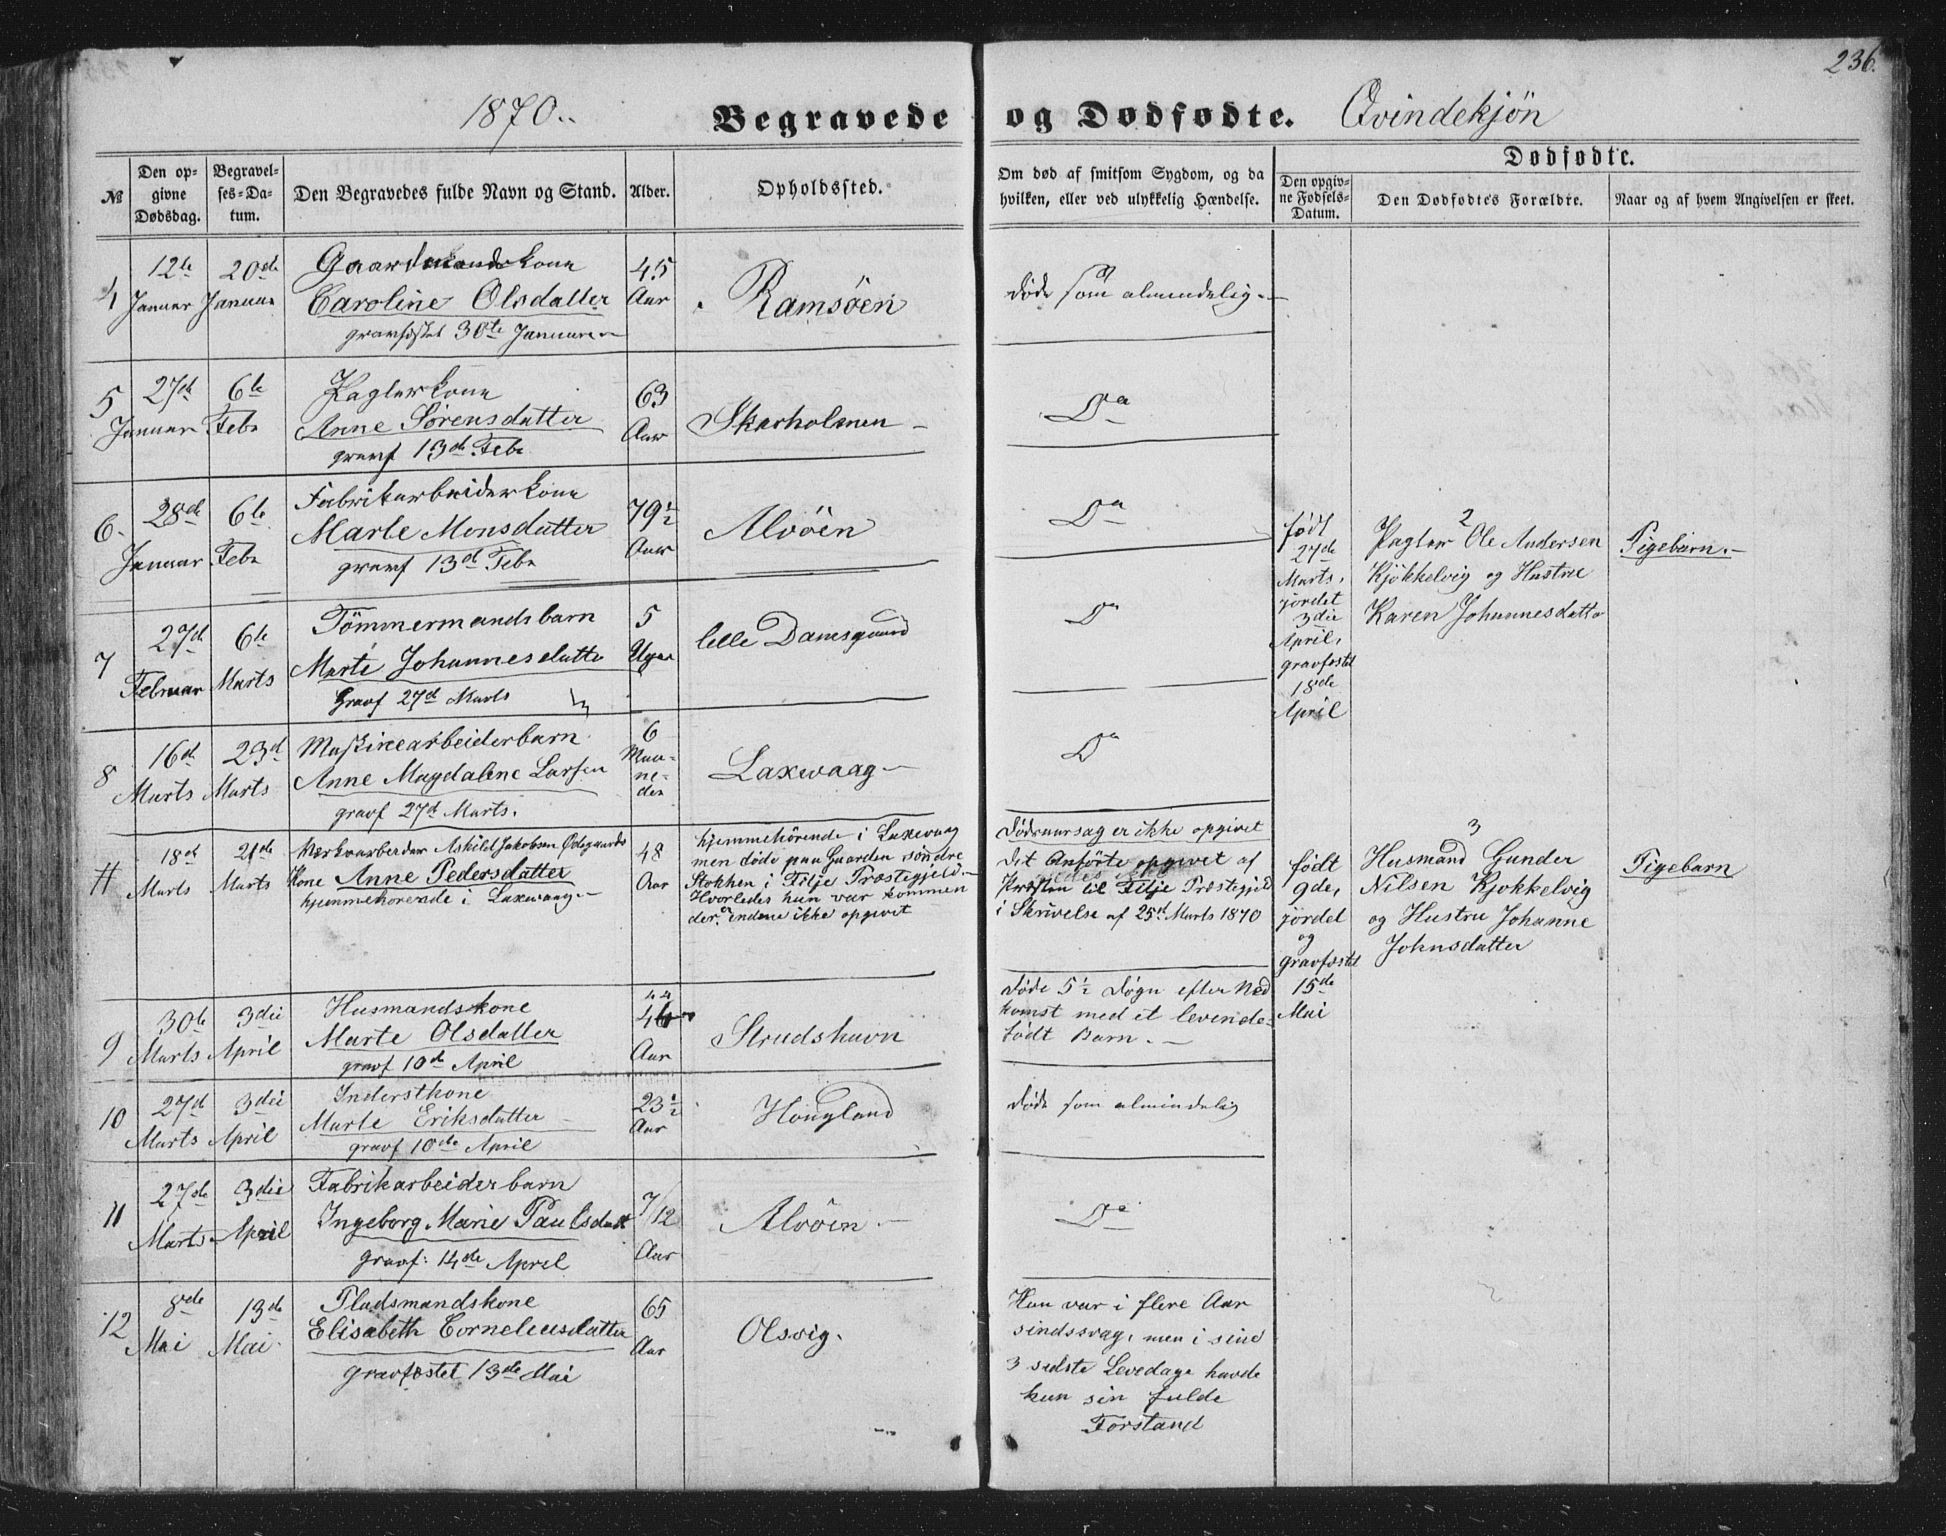 236.
1870..
Begravede og Dødfødte. Qvindekjøn
№
Den opgivne Dødsdag.
Begravelses-Datum.
Den Begravedes fulde Navn og Stand.
Alder.
Opholdssted.
Om død af smitsom Sygdom, og da hvilken, eller ved ulykkelig Hændelse.
Dødfødte.
Den opgivne Fødsels-Datum.
Den Dødfødtes Forældre.
Naar og af hvem Angivelsen er skeet.
4
12te Januar
20de Januar
Gaardmandskone
Caroline Olsdatter
gravfæstet 30te Januar
45 Aar
Ramsöen
døde som almindelig.
5
27de Januar
6te Febr
Pagterkone
Anne Sørensdatter
gravf 13de Febr
63 Aar
Skarholmen
Do
6.
28de Januar
6te Febr
Fabrikarbeiderkone
Marte Monsdatter
gravf 13de Febr
79½ Aar
Alvöen
Do
7
27de Februar
6te Marts
Tömmermandsbarn
Marte Johannesdatte
Gravf 27de Marts
5 Uger
lille Damsgaard
Do
8
16de Marts
23de Marts
Maskinearbeiderbarn
Anne Magdalene Larsen
gravf 27de Marts.
6 Maaneder
Laxevaag
Do
18de Marts
21de Marts
Værkarbeider Askild Jakobsen Ødegaards
Kone Anne Pedersdatter
hjemmehörende i Laxevaag
48 Aar
hjemmehörende i Laxevaag
men döde paa Gaarden söndre
Stokken i Præstegjeld.
Hvorledes hun var kommen
der er endnu ikke opgivet
Dödsaarsag er ikke opgivet
Det Anförte opgivet af
Præsten til Præstegjeld
i Skrivelse af 25de Marts 1870
9
30te Marts
3die April
Husmandskone
Marte Olsdatter
gravf 10de April
44
Aar
Strudshavn
döde 5½ Døgn efter Nedkomst med et levendefödt Barn.
10
27de Marts
3die April
Inderstkone
Marte Eriksdatter
gravf 10de April
23½ Aar
Hougland
döde som almindelig
11
27de Marts
3die April
Fabrikarbeiderbarn
Ingeborg Marie Paulsdatt
gravf: 14de April
7/12 Aar
Alvöen
Do
12
8de Mai
13de Mai
Pladsmandskone
Elisabeth Corneliusdatter
gravfæstet 13de Mai
65 Aar
Olsvig.
Hun var i flere Aar
sindssvag, men i sine
3 sidste Levedage havde
hun sin fulde
Forstand
födt
27de
Marts,
jordet
3die
April,
gravfæstet
18de
April
2
Pagter Ole Andersen
Kjökkelvig og Hustru
Karen Johannesdatter
Pigebarn.
födt
9de,
jordet
og
gravfæstet
15de
Mai
3
Husmand Gunder
Nilsen Kjøkkelvig
og Hustru Johanne
Johnsdatter
Pigebarn